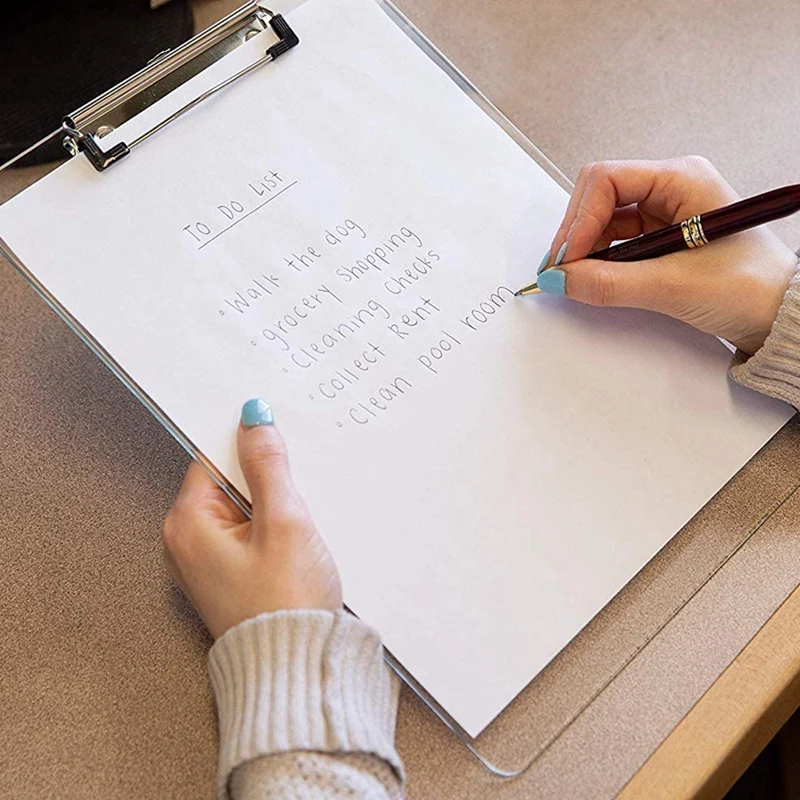 To Do List
◦ Walk the dog
◦ grocery shopping
◦ Cleaning checks
◦ Collect Rent
◦ Clean pool room